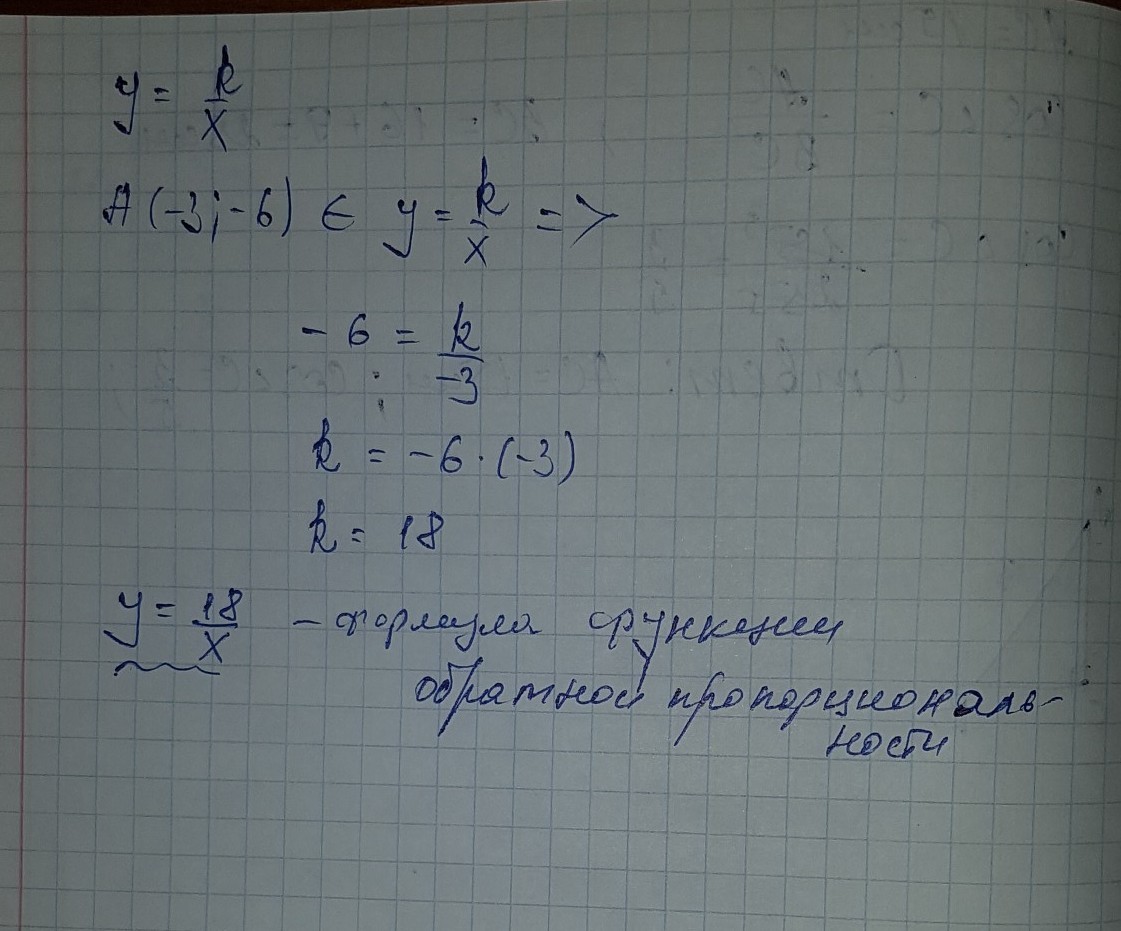 y = k/x
A (-3; -6) ∈ y = k/x =>
- 6 = k/-3
k = -6 · (-3)
k = 18
y = 18/x - формула функции
обратной пропорциональ-
ности